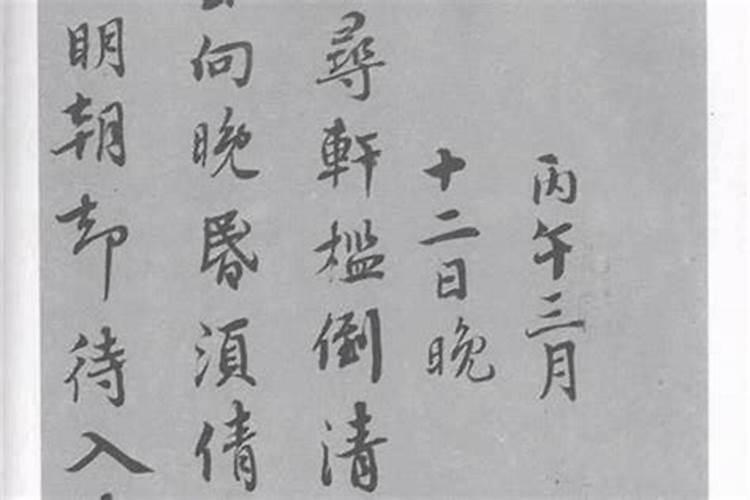 丙午三月
十二日晚
尋軒檻倒清
向晚昏須倩
明朝却待入